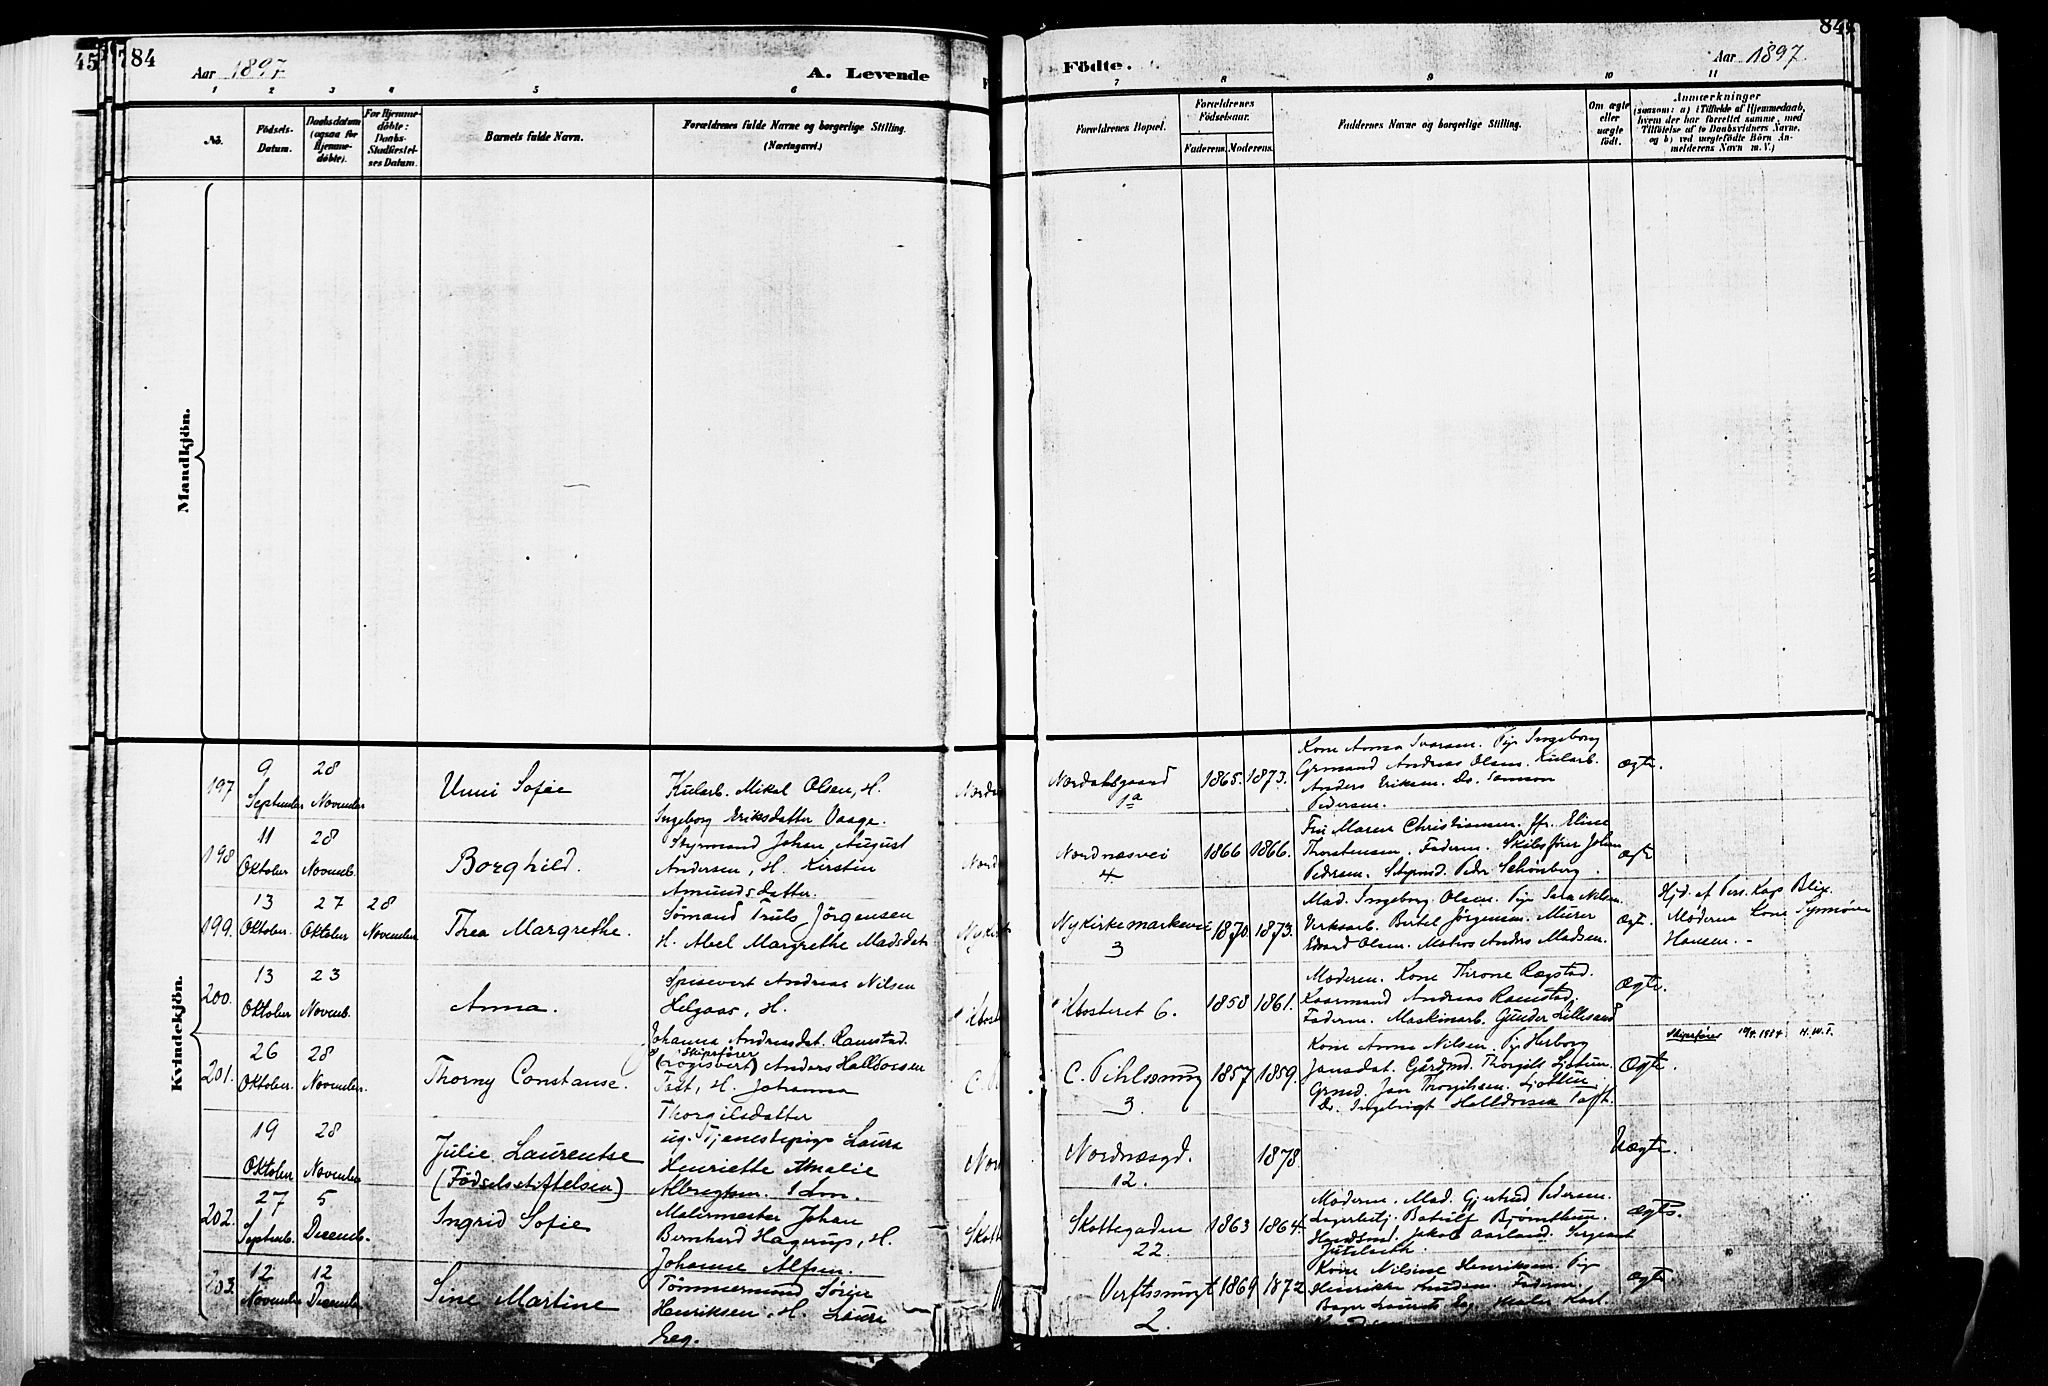 45
84
84
Aar 1897
A. Levende
Födte.
Aar 1897
1
2
3
4
5
6
7
8
9
10
11
No.
Födsels-
Datum.
Daabsdatum
(ogsaa for
Hjemme-
døbte).
For Hjemme-
døbte:
Daabs-
Stadfæstel-
ses Datum.
Barnets fulde Navn.
Forældrenes fulde Navne og borgerlige Stilling.
(Næringsvei.)
Forældrenes Bopæl.
Forældrenes
Födselsaar.
Faderens.
Moderens.
Faddernes Navne og borgerlige Stilling.
Om ægte
eller
uægte
født.
Anmærkninger
(saasom: a) i Tilfælde af Hjemmedaab,
hvem der har forrettet samme, med
Tilföielse af to Daabsvidners Navne,
og b) ved uægtefødte Börn An-
melderens Navn m. V.)
Mandkjön.
Kvindekjön.
197
9
September
28
November
Unni Sofie
Kularb. Mikal Olsen, H.
Ingeborg Eriksdatter Vaage.
Nordalsgaard
1a
1865.
1873.
Kone Anna Ivarsen. Pige Ingeborg
Grmand Andreas Olsen. Kularb.
Anders Eriksen. Do. Samson
Pedersen.
Ægte.
198
11
Oktober
28
Novemb.
Borghild.
Styrmand Johan August
Andersen, H. Kirsten
Amundsdatter.
Nordnæsvei
4.
1866
1866.
Fru Maren Christiansen. Jfr. Eline
Thorstensen. Faderen. Skibsfører Johan
Pedersen. Styrmd. Peder Schönberg.
ægte
199.
13
Oktober.
27
Oktober
28
November
Thea Margrethe.
Sömand Truls Jörgensen
H. Abel Margrethe Madsdat
Nykirkemarkevei
3
1870
1873.
Mad. Ingeborg Olsen. Pige Sara Nilsen.
Verksarb. Bertel Jörgensen. Murer
Edvard Olsen. Matros Anders Madsen.
Ægt.
Hjd. af Pers. Kap. Blix.
Moderen Kone Synnöve
Hansen. -
200.
13
Oktober
23
Novemb.
Anna.
Spisevert Andreas Nilsen
Helgaas, H.
Johanna Andreasdat. Ramstad.
Klosteret 6.
1858
1861.
Moderen. Kone Throne Rægstad.
Kaarmand Andreas Ramstad.
Faderen. Maskinarb. Gunder Lillesand
Ægte.
201.
26
Oktober.
28
November.
Thorny Constanse.
Skipsfører
(Logisvert) Anders Halldorsen
Toft, H. Johanna
Thorgilsdatter
C. Pihlssmug
3.
1857
1859.
Kone Anna Nilsen. Pige Herborg
Jansdat. Gårdmd. Thorgils Ljotun
Grmd. Jan Thorgilsen. Ljotun
Do. Ingebrigt Halldorsen Toft.
Ægte.
Skipsfører 1884 H.W.T.
19
Oktober
28
November
Julie Laurentse
(Födselsstiftelsen)
ug. Tjenestepige Laura
Henriette Amalie
Albregtsen. 1 Lm.
Nordnæsgd.
12.
1878.
Uægte.
202.
27
Septemb.
5
Decemb.
Ingrid Sofie
Malermester Johan
Bernhard Hagerup, H.
Johanne Alfsen.
Skottegaden
22
1863
1864.
Moderen. Mad. Gjertrud Pedersen.
Lagerbetj. Botulf Bjørnthun.
Handsmd. Jakob Aarland. Sergeant
Jutelseth.
ægte.
203.
12
November
12
December
Sine Martine
Tömmermand Sörine
Henriksen, H. Laura
Eeg.
Verftssmugt
2.
1869
1872
Kone Nilsine Henriksen. Pige
Henrikke Knudsen. Faderen.
Bager Laurits Eeg. Maler Karl
ægte.